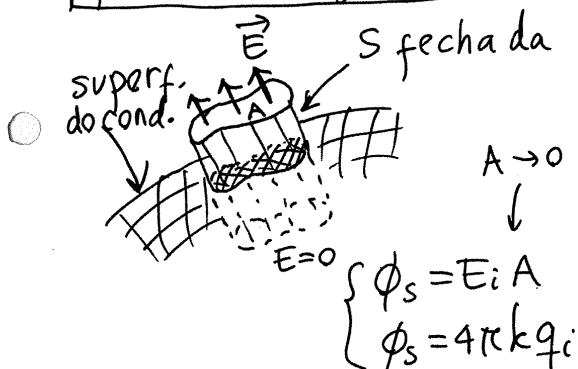 E⃗
S fechada
superf.
do cond.
A
A → 0
E=0
ϕₛ = Eᵢ A
ϕₛ = 4πkqᵢ